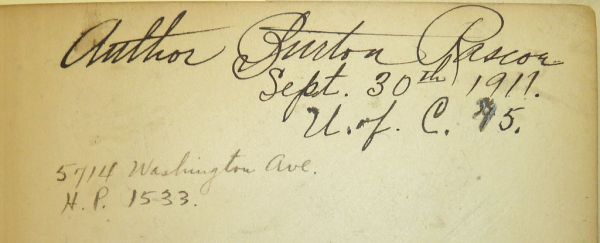 Arthur Burton Rascoe
Sept. 30th 1911.
U. of C. '15.
5714 Washington Ave.
H. P. 1533.